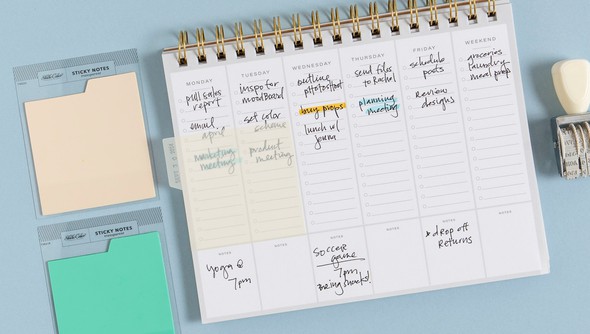 STICKY NOTES
STICKY NOTES
MONDAY
pull sales
report
email
april
marketing
meeting
NOTES
yoga @
7pm
TUESDAY
inspo for
moodboard
set color
scheme
product
meeting
NOTES
WEDNESDAY
outline
photoshoot
buy props
lunch w/
NOTES
Soccer
game
7pm
Bring snacks!
THURSDAY
send files
to Rachel
planning
meeting
NOTES
FRIDAY
schedule
posts
Review
designs
NOTES
* drop off
Returns
WEEKEND
groceries
laundry
meal prep
NOTES